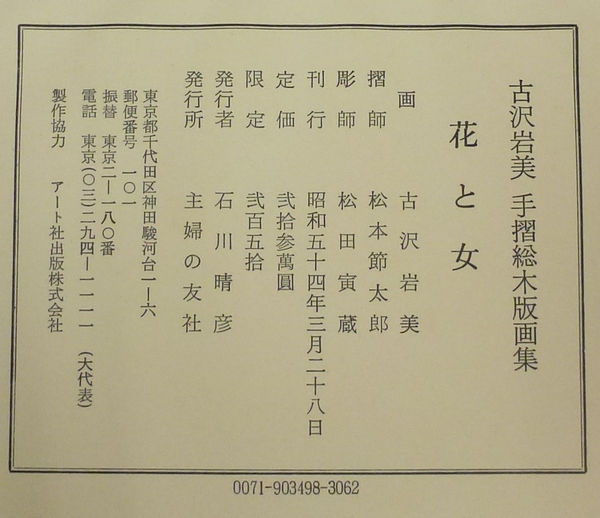 古沢岩美 手摺総木版画集
花と女
画 古沢岩美
摺師 松本節太郎
彫師 松田寅蔵
刊行 昭和五十四年三月二十八日
定価 弐拾参萬圓
限定 弐百五拾
発行者 石川晴彦
発行所 主婦の友社
東京都千代田区神田駿河台一―六
郵便番号 一〇一
振替 東京二―一八〇番
電話 東京(〇三)二九四―一一一一 (大代表)
製作協力 アート社出版株式会社
0071-903498-3062